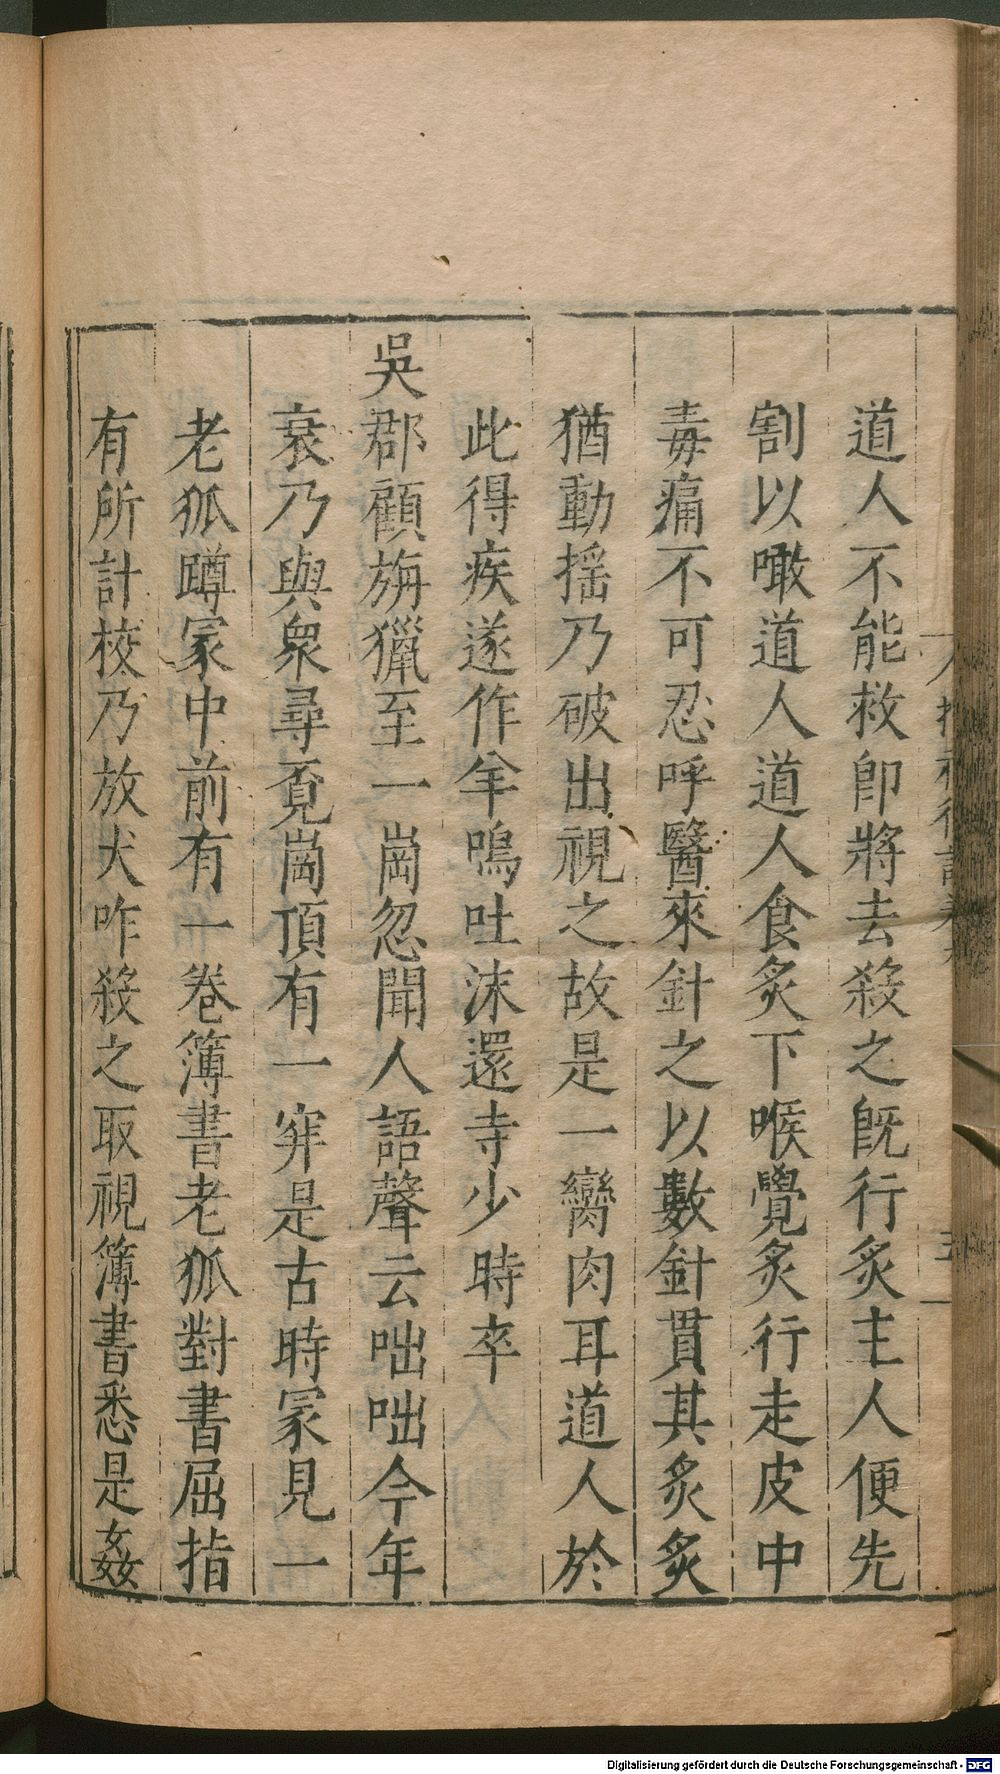 道人不能救即將去殺之既行炙主人便先
割以噉道人道人食炙下喉覺炙行走皮中
毒痛不可忍呼醫來針之以數針貫其炙炙
猶動搖乃破出視之故是一臠肉耳道人於
此得疾遂作羊鳴吐沫還寺少時卒
吳郡顧旃獵至一崗忽聞人語聲云咄咄今年
衰乃與衆尋覔崗頂有一穽是古時冢見一
老狐蹲冢中前有一卷簿書老狐對書屈指
有所計校乃放犬咋殺之取視簿書悉是姦
Digitalisierung gefördert durch die Deutsche Forschungsgemeinschaft - DFG